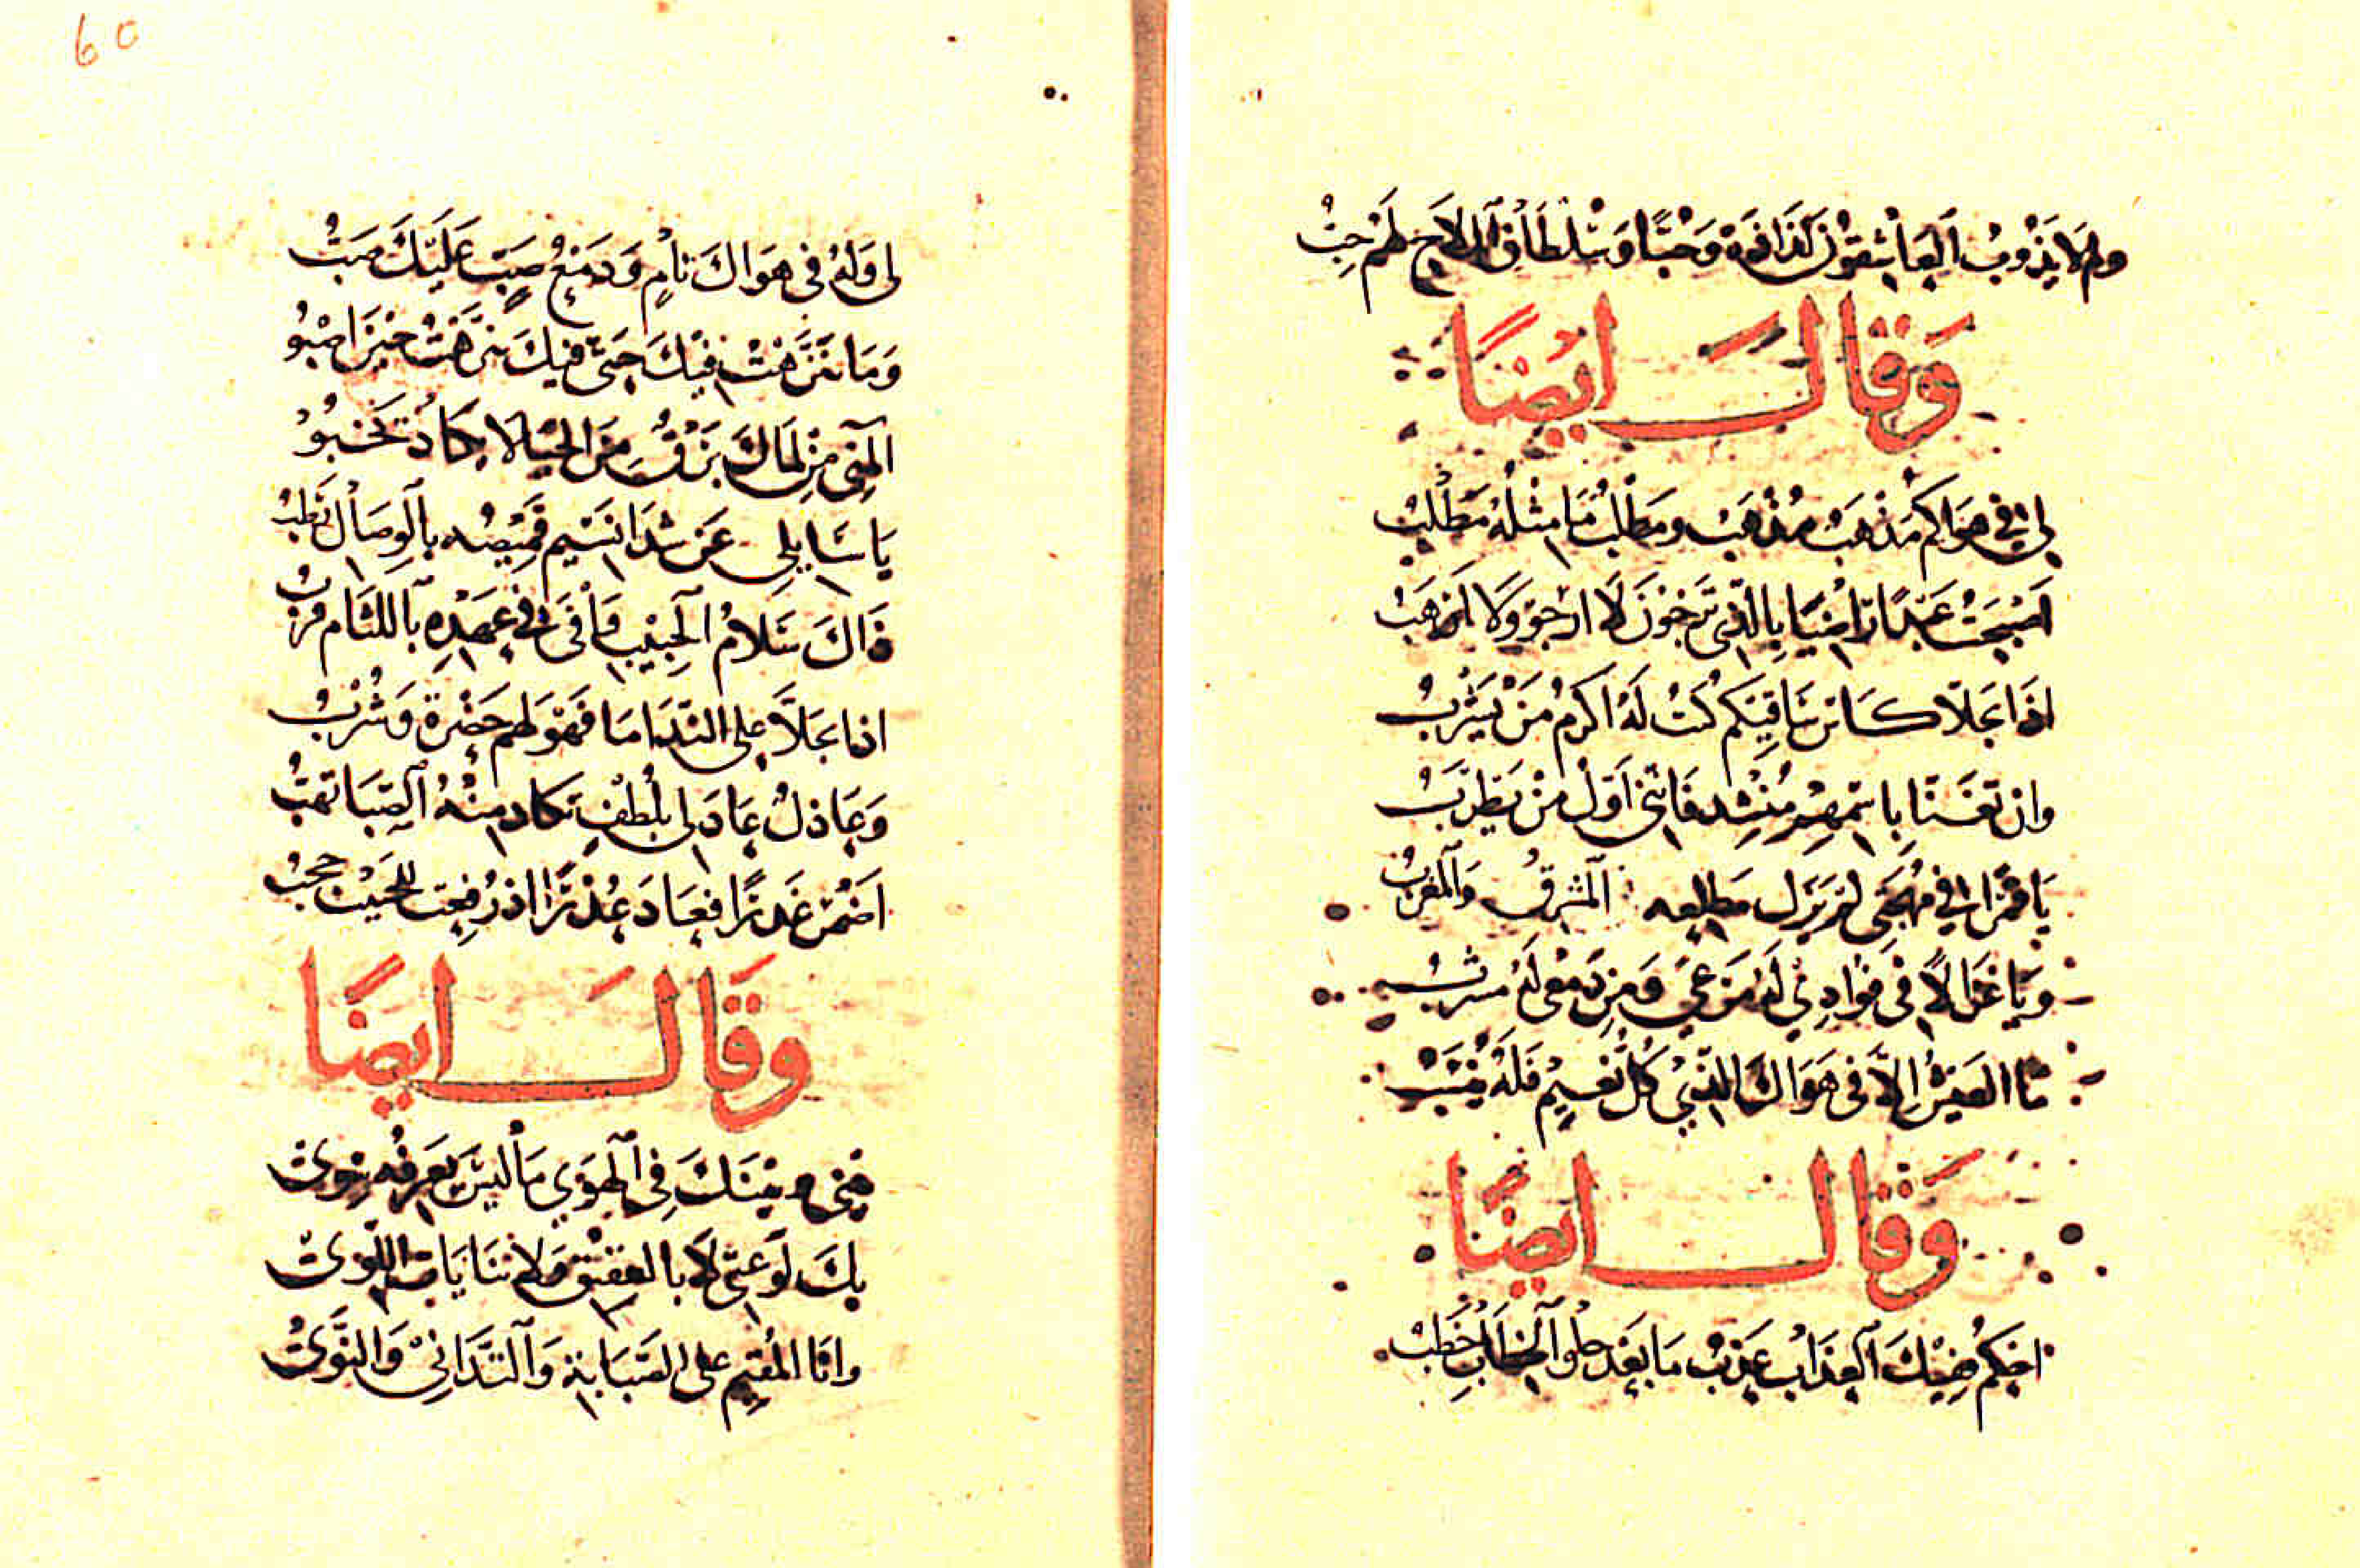 ولم لا يذوب العاشقون لذاذة وحبًّا وسلطان الملاح لهم حب
وَقَالَ ايْضًا
لي في هواكم مذهب مذهب ومطلب ما مثله مطلب
اصبحت عبدًا راضيًا بالذي ترضون لا ارجو ولا ارهب
اذا تجلّا كاس ساقيكم كنت له اكرم من يشرب
وان تغنّا باسمهم منشد فانني اول من يطرب
يا قمرًا في مهجتي لم يزل مطلعه المشرق والمغرب
ويا غزالًا في فوادي له مرعي ومن دمعي له مشرب
ما العيش الّا في هواك الذي كل نعيم فله ينسب
وَقَال ايضًا
احكم فيك العذاب عذب ما بعد حلو الخطاب خطب
لي وله في هواك نام ودمع صبّ عليك صب
وما تنزهت فيك حتي فيك تنزهت حين اصبو
المني من لماك برق من الحيا لا يكاد تخبو
يا سايلي عن شذا نسيم قميصه بالوصال رطب
ذاك سلام الحبيب وافي في عهده باللثام قرب
اذا تجلّا علي الندّاما فهو لهم حضرة وشرب
وعاذل عاد لي بلطف تكاد منه الصّبا تهب
اضمر غدرًا فعاد عذرًا اذ رفعت للحبيب حجب
وَقَالَ ايضًا
بيني وبينك في الهوي ما ليس يعرفه سوي
بك لوعتي لا بالعقيق ولا ثنايات اللّوي
وانا المقيم علي الصّبابة والتّداني والنّوي